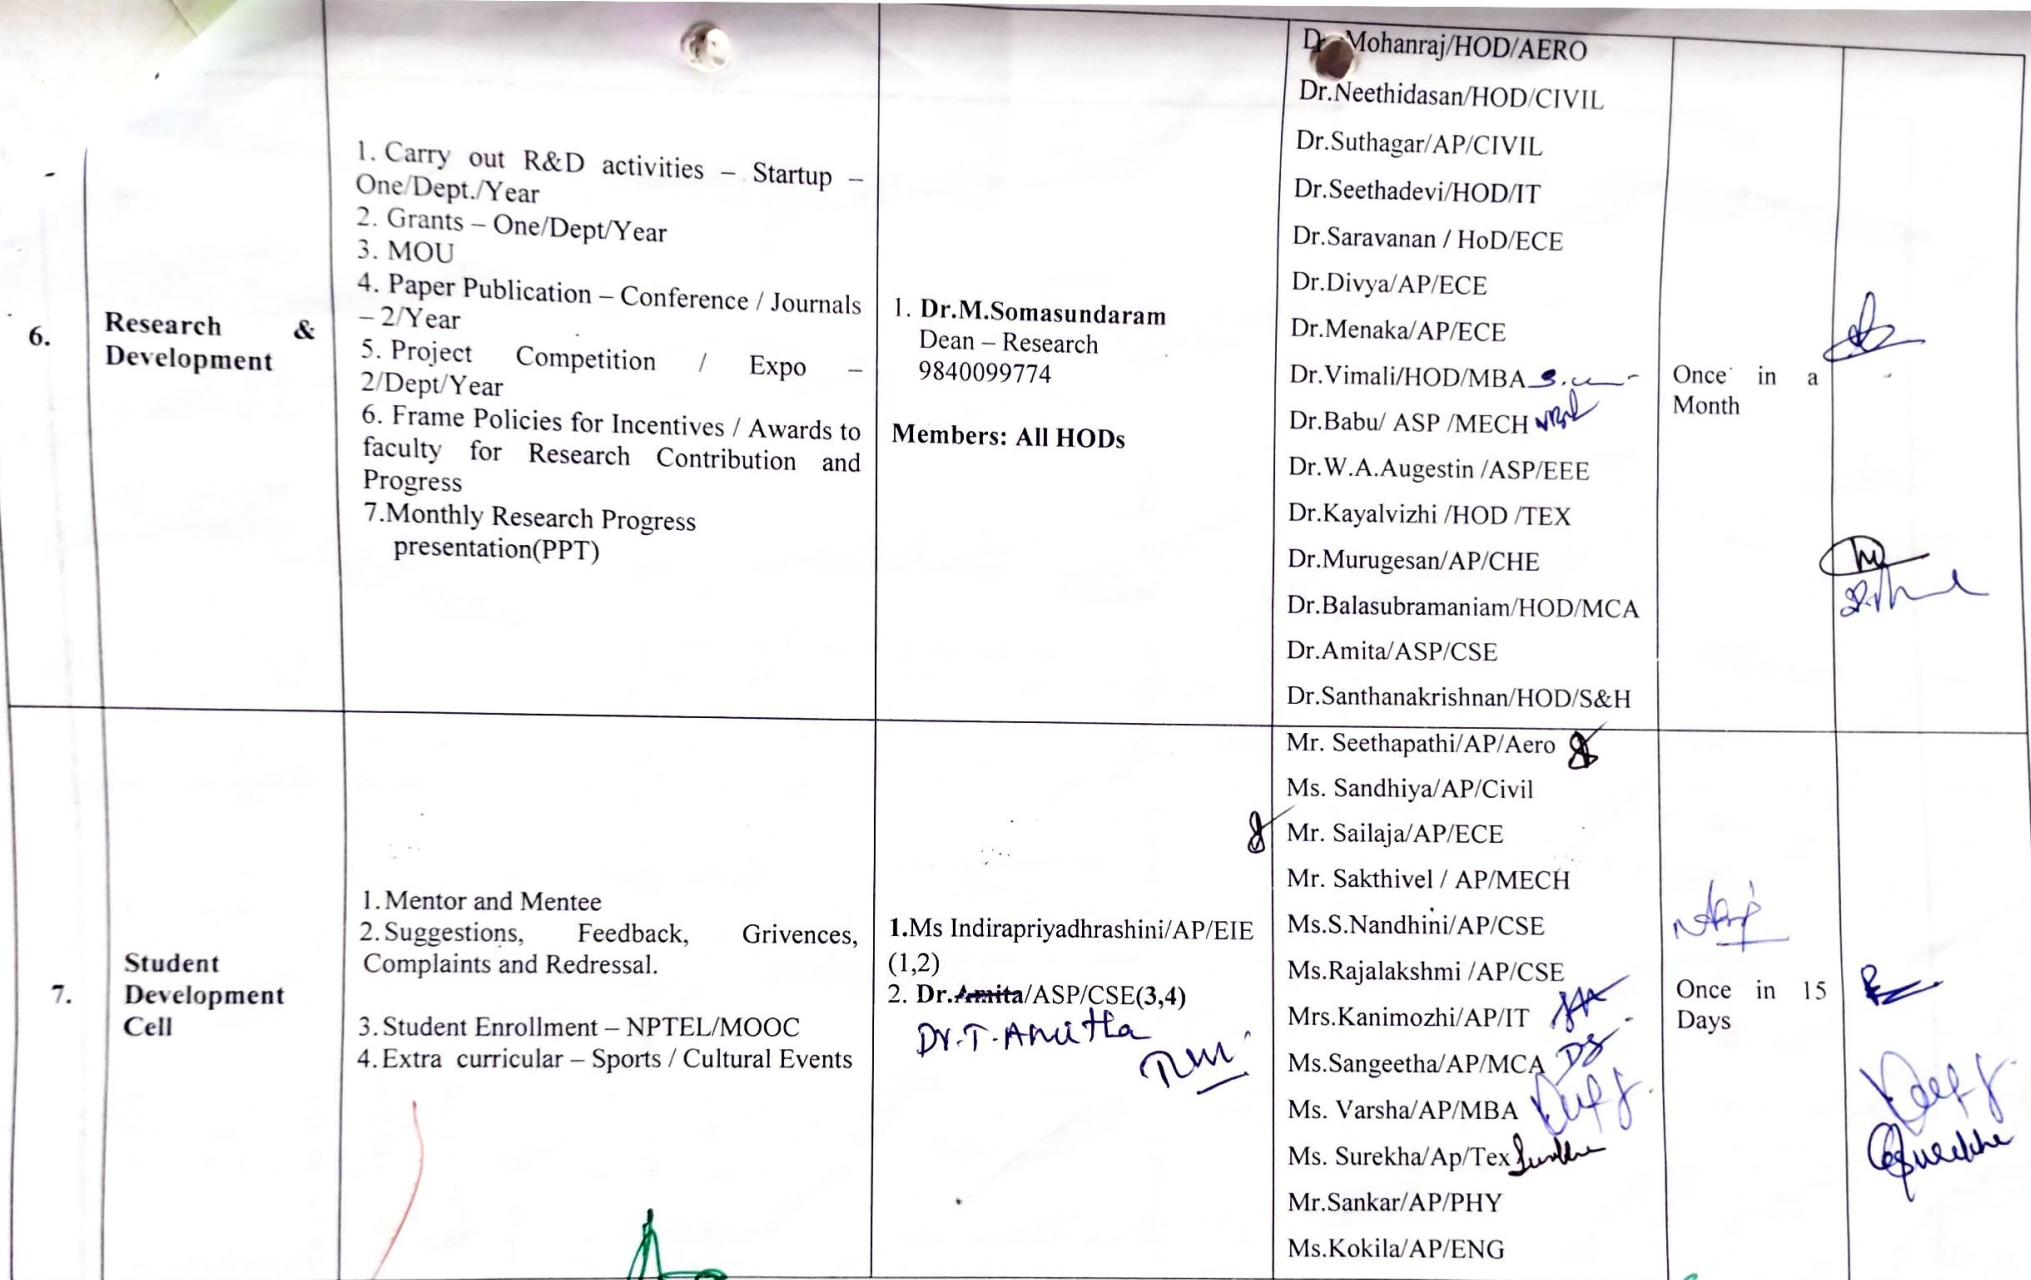 6.
Research &
Development
1. Carry out R&D activities – Startup –
One/Dept./Year
2. Grants – One/Dept/Year
3. MOU
4. Paper Publication – Conference / Journals
– 2/Year
5. Project Competition / Expo –
2/Dept/Year
6. Frame Policies for Incentives / Awards to
faculty for Research Contribution and
Progress
7.Monthly Research Progress
presentation(PPT)
1. Dr.M.Somasundaram
Dean – Research
9840099774
Members: All HODs
Mohanraj/HOD/AERO
Dr.Neethidasan/HOD/CIVIL
Dr.Suthagar/AP/CIVIL
Dr.Seethadevi/HOD/IT
Dr.Saravanan / HoD/ECE
Dr.Divya/AP/ECE
Dr.Menaka/AP/ECE
Dr.Vimali/HOD/MBA
Dr.Babu/ ASP /MECH
Dr.W.A.Augestin /ASP/EEE
Dr.Kayalvizhi /HOD /TEX
Dr.Murugesan/AP/CHE
Dr.Balasubramaniam/HOD/MCA
Dr.Amita/ASP/CSE
Dr.Santhanakrishnan/HOD/S&H
Once in a
Month
7.
Student
Development
Cell
1.Mentor and Mentee
2.Suggestions, Feedback, Grivences,
Complaints and Redressal.
3.Student Enrollment – NPTEL/MOOC
4.Extra curricular – Sports / Cultural Events
1.Ms Indirapriyadhrashini/AP/EIE
(1,2)
2. Dr.Amita/ASP/CSE(3,4)
Dr.T.Amitha
Mr. Seethapathi/AP/Aero
Ms. Sandhiya/AP/Civil
Mr. Sailaja/AP/ECE
Mr. Sakthivel / AP/MECH
Ms.S.Nandhini/AP/CSE
Ms.Rajalakshmi /AP/CSE
Mrs.Kanimozhi/AP/IT
Ms.Sangeetha/AP/MCA
Ms. Varsha/AP/MBA
Ms. Surekha/Ap/Tex
Mr.Sankar/AP/PHY
Ms.Kokila/AP/ENG
Once in 15
Days